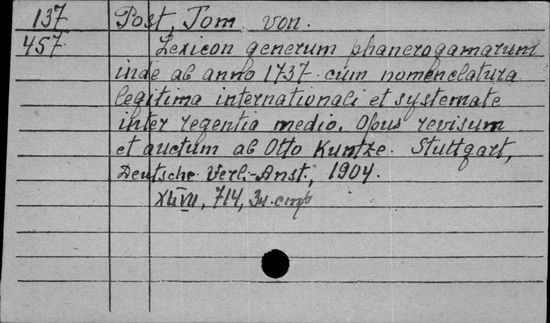 137 Post, Tom von.
457 Lexicon generum phanerogamarum
inde ab anno 1737 cum nomenclatura
legitima internationali et systemate
inter regentia medio. Opus revisum
et auctum ab Otto Kuntze. Stuttgart,
Deutsche Verl.-Anst., 1904.
714,